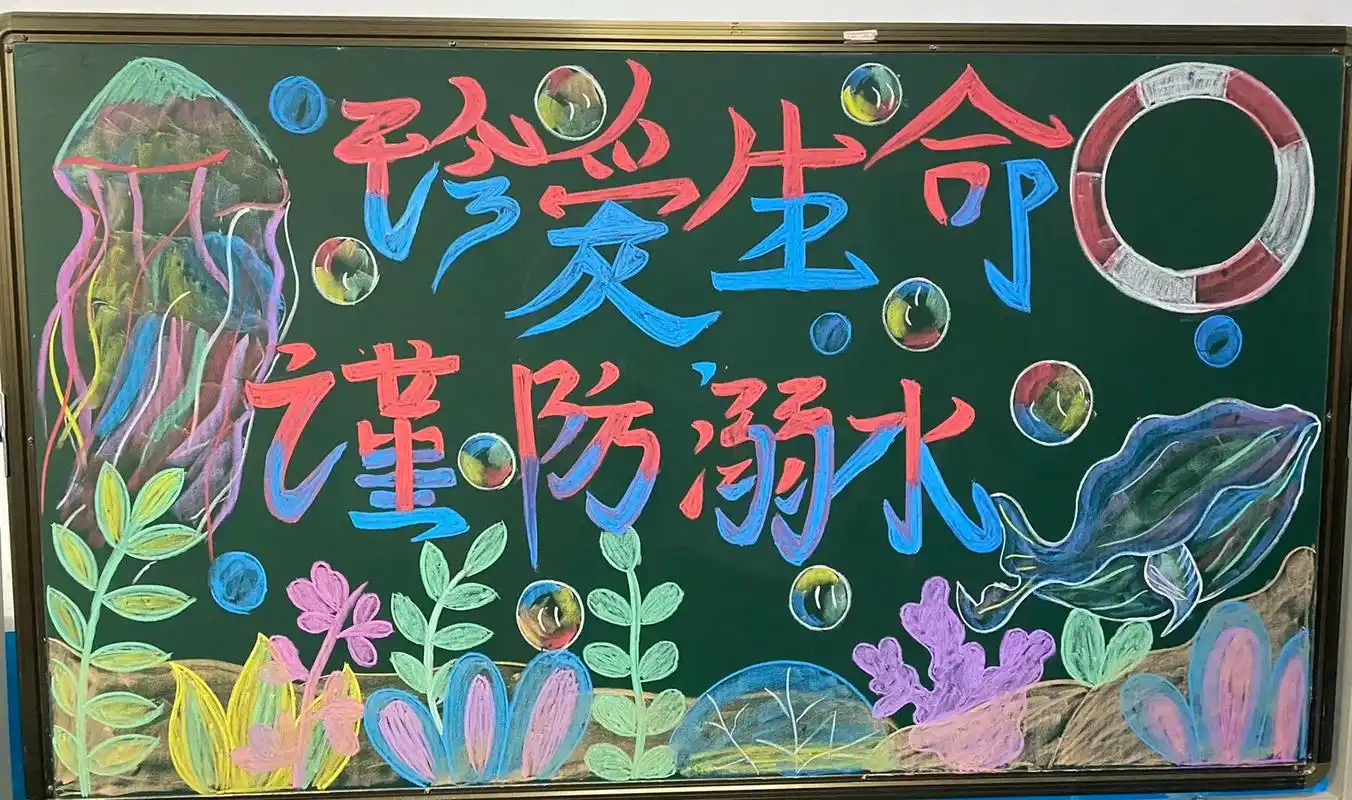 珍爱生命
谨防溺水